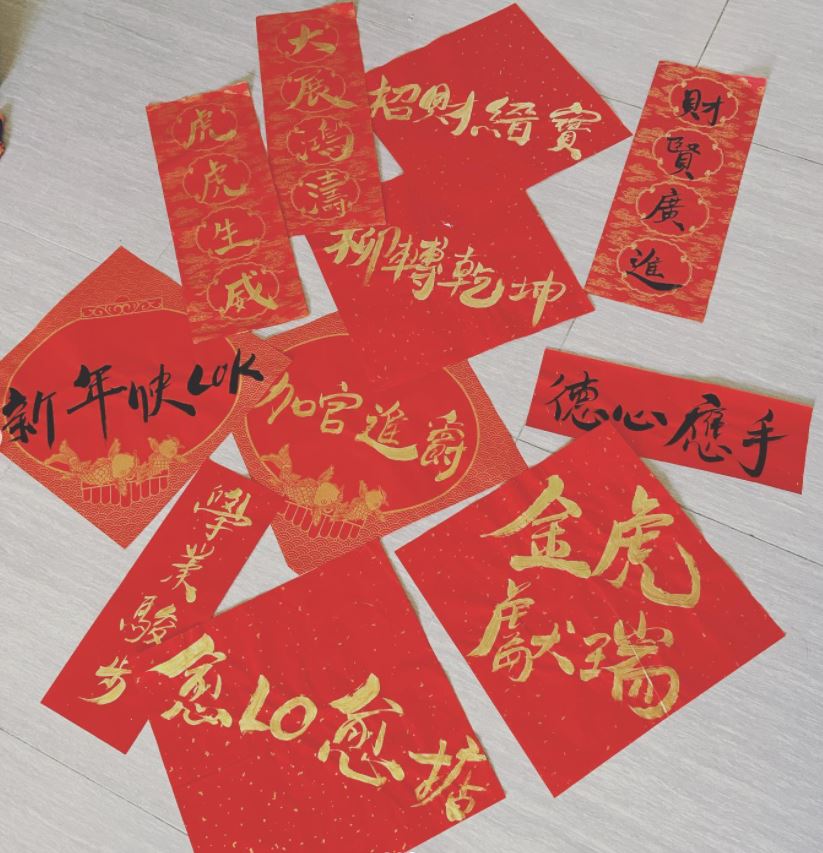 大展鴻濤
招財縉寶
虎虎生威
財賢廣進
柳轉乾坤
新年快LOK
加官進爵
德心應手
學業駿步
金虎
獻瑞
愈LO愈掂